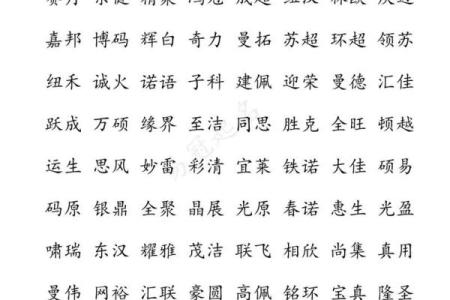 嘉邦 博码 辉白 奇力 曼拓 苏超 环超 领苏
纽禾 诚火 诺语 子科 建佩 迎荣 曼德 汇佳
跃成 万硕 缘界 至洁 同思 胜克 全旺 顿越
运生 思风 妙雷 彩清 宜莱 铁诺 大佳 硕易
码原 银鼎 全聚 晶展 光原 春诺 惠生 光盈
啸瑞 东汉 耀雅 茂洁 联飞 相欣 尚集 真用
曼伟 网裕 汇联 豪圆 高佩 铭环 宝真 隆圣